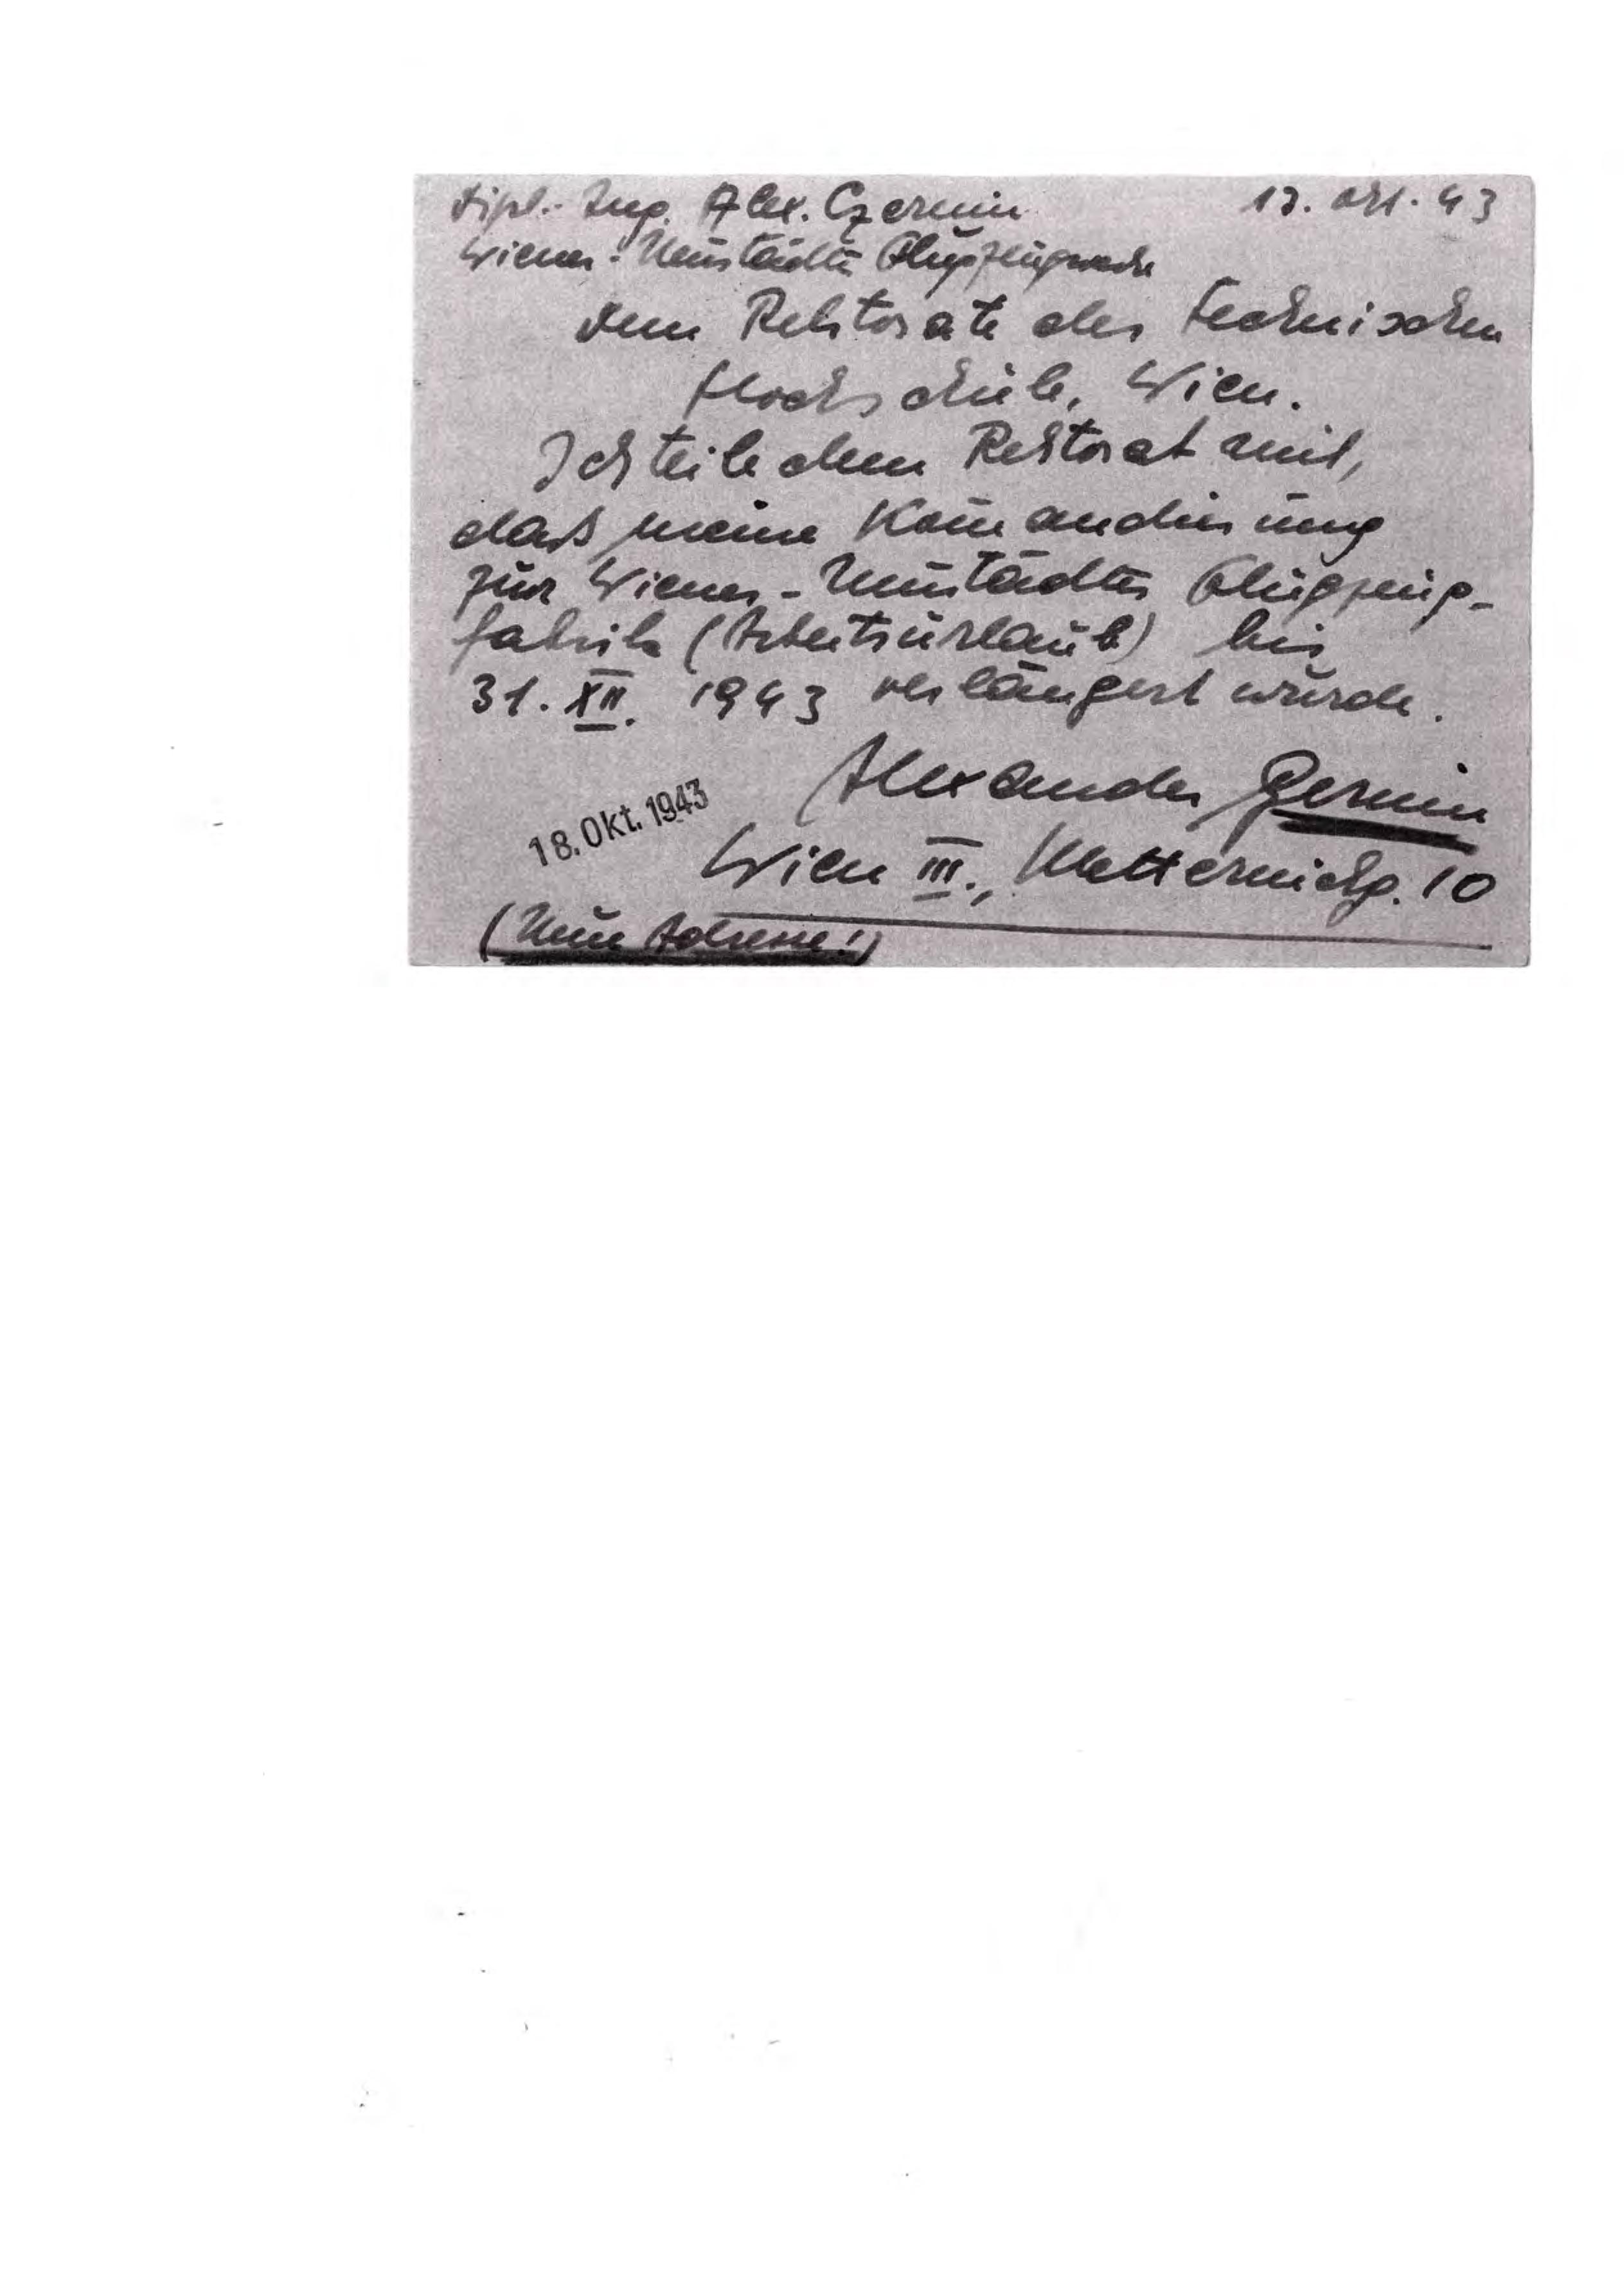 Dipl.-Ing. Alex. Czernin 17. Okt. 43
Wiener-Neustädter Flugzeugwerke
Dem Rektorate der Technischen
Hochschule, Wien.
Ich teile dem Rektorat mit,
daß meine Kom̄andierung
zur Wiener-Neustädter Flugzeug-
fabrik (Arbeitsurlaub) bis
31. XII. 1943 verlängert wurde.
Alexander Czernin
18. Okt. 1943
Wien III., Metternichg. 10
(Neue Adresse!)